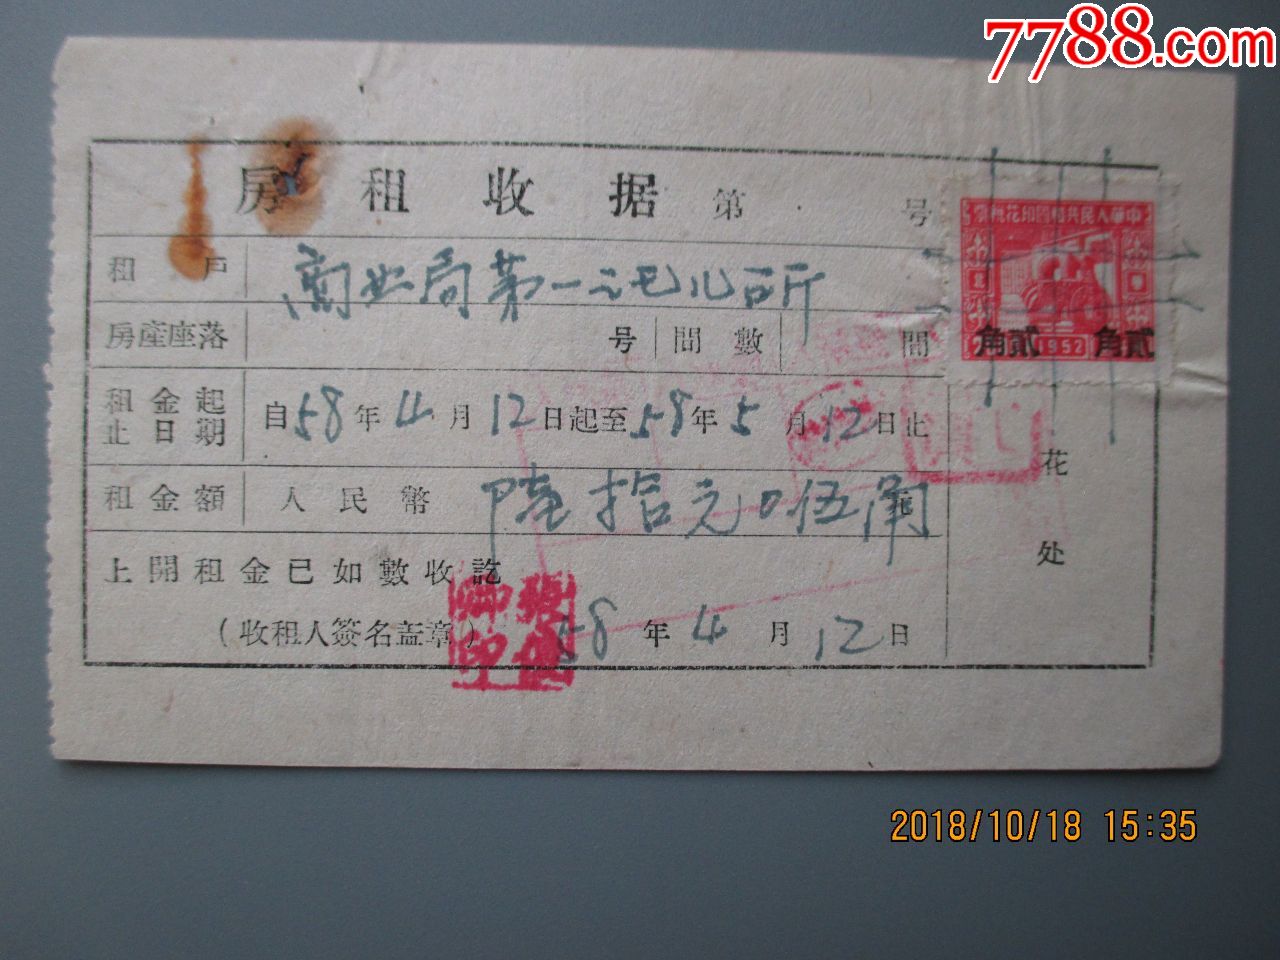 7788.com
房租收据 第 号
中華人民共和國印花稅票
角貳 1952 角貳
租戶 商业局第一
房產座落 号 間數 間
租金起止日期 自58年4月12日起至58年5月12日止
租金額 人民幣 陸拾元0伍角
花
处
上開租金已如數收訖
(收租人簽名盖章) 58年4月12日
2018/10/18 15:35